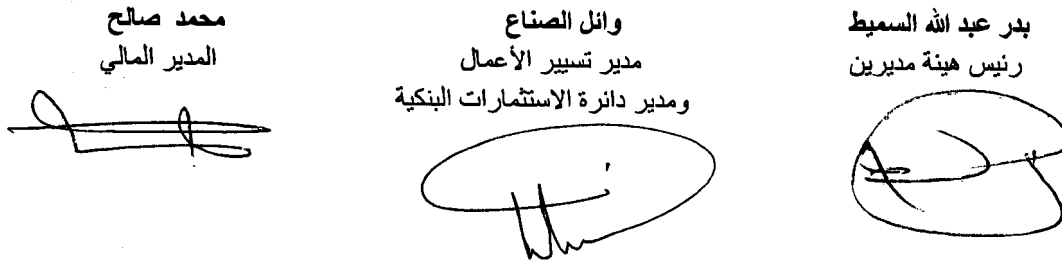 بدر عبد الله السميط
رئيس هيئة مديرين
وائل الصناع
مدير تسيير الأعمال
ومدير دائرة الاستثمارات البنكية
محمد صالح
المدير المالي